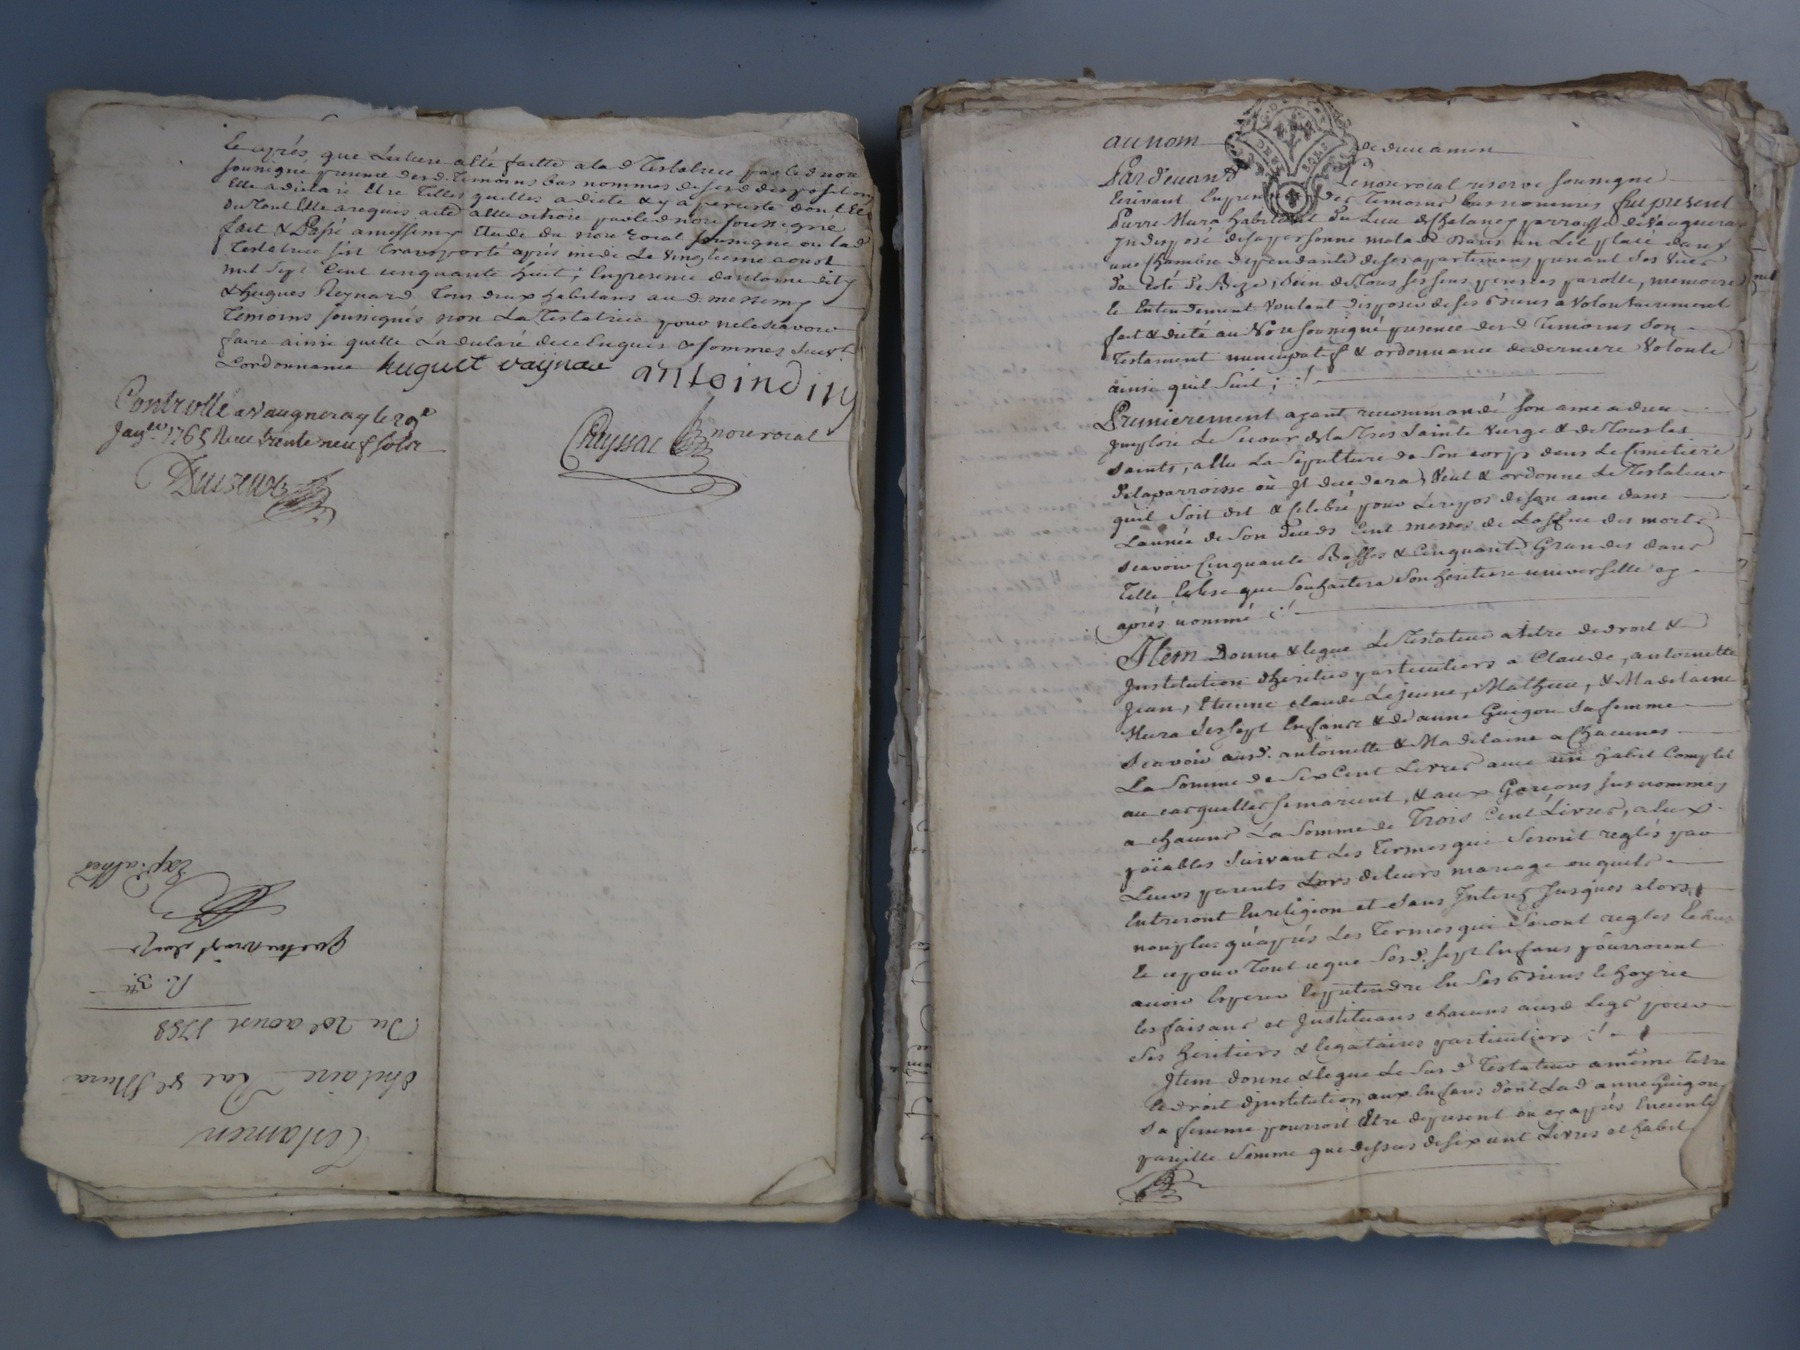 Et après que lecture a été faitte a la d Testatrice par le d nore
soussigné presence des d. Temoins bas nommés de ses d dispositions
Elle a déclaré Etre telles quelles a dicté & y a persisté dont Et
du tout Elle a requis acte a Elle octroié par led nore soussigné
fait & Passé a messimy Etude du nore Roial soussigné ou lad
Testatrice s'est transporté après midi Le vingtieme aoust
mil sept Cent cinquante huit; En presence dantoine diny
& hugues Reynard tous deux habitans aud messimy
temoins soussignés non La Testatrice pour ne le scavoir
faire ainsi quelle La declaré de ce Enquis & sommés suivt
Lordonnance huguet vaynac antoin diny
Controllé a Vaugneray le 29e
Janer 1765 Reçu trente neuf sols
nore roial
Testamens
Du 20e aoust 1758
R. 3tt
au nom de dieu amen
Pardevant Le nore roial reservé soussigné
Ecrivant En presence des Temoins bas nommés fut present
Pierre Mura habitant du Lieu de Chalanes parroisse de Vaugneray
Indisposé de sa personne malade Dans un Lit placé dans
une Chambre dependante de ses appartemens prenant ses vües
du coté de Bize, sain de tous ses sens pensées parolle, memoire
et Entendement voulant disposer de ses Biens a volontairement
fait & dicté au Nore soussigné presence des d Temoins son
Testament nuncupatif & ordonnance de derniere volonté
ainsi quil suit;
Premierement ayant recommandé son ame a dieu
Imploré Le secour de la Tres Sainte vierge & de Tous les
saints, a Elu La sepulture de son corps dans le simetiere
de la parroisse où Il decedera, Veut & ordonne Le Testateur
quil soit dit & celebré pour Le repos de son ame dans
Lannée de son deceds Cent messes de Loffice des morts
scavoir Cinquante Basses & Cinquante Grandes dans
telle Eglise que souhaitera son heritiere universelle cy
après nommé
Item Donne & legue Le Testateur a titre de droit &
Institution dheritiers particuliers a Claude, antoinette
Jean, Etienne claude Lejeune, Mathieu, & Madelaine
Mura ses sept Enfans & de anne Guigou sa femme
scavoir auxd. antoinette & Madelaine a Chacunes
La Somme de six Cent Livres avec un habit Complet
au cas quelles se marient, & aux Garçons sus nommés
a chacuns La somme de Trois Cent Livres, a eux
païables suivant Les termes qui seront reglés par
Leurs parents Lors de leurs mariage ou quils
Entreront En religion et sans Interest Jusques alors
non plus qu'après Les Termes qui seront reglés Echus
Et ce pour tout ce que sesd. sept Enfans pourroient
avoir Esperer et pretendre En ses Biens et hoyrie
les faisant et Instituans chacuns aux d Legs pour
ses heritiers & legataires particuliers
Item donne & legue Le sus d Testateur a même titre
de droit dinstitution aux Enfans dont Lad anne Guigou
sa femme pourroit Etre de present ou cy après Enceinte
pareille Somme que dessus de six cent Livres et habit